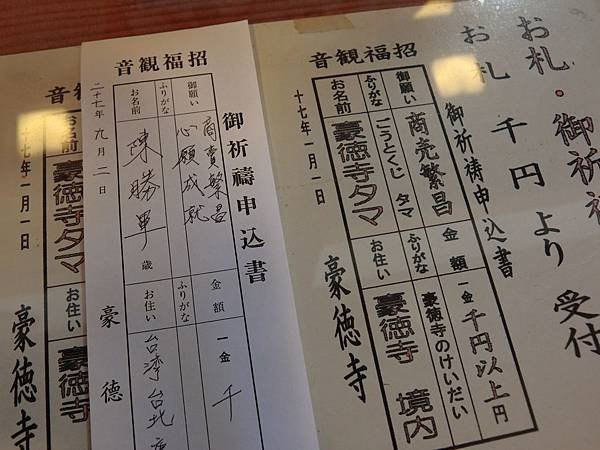 お札・御祈
お札 千円より 受付
招福観音
御祈祷申込書
御願い 商売繁昌 金額 一金 千円以上 円
ふりがな ごうとくじ タマ ふりがな 豪徳寺のけいだい
お名前 豪徳寺タマ お住い 豪徳寺 境内
十七年一月一日 豪徳寺
招福観音
御祈禱申込書
御願い 商賣繁昌 心願成就 金額 一金 千
ふりがな ふりがな
お名前 陳勝 歳 お住い 台湾台北
二十七年九月二日 豪德
音
お名前 豪徳寺タマ お住い 豪徳
七年一月一日 豪徳寺